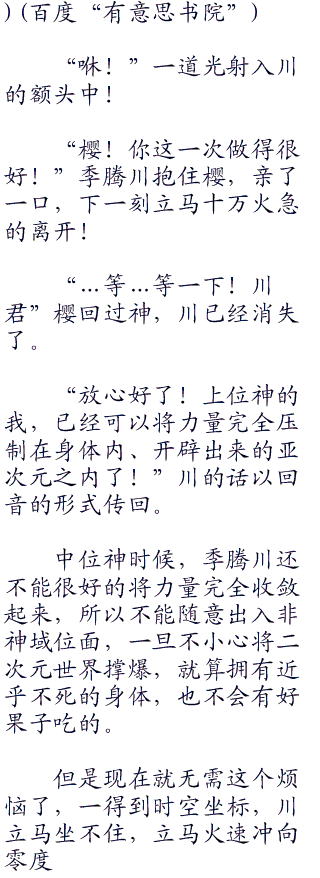 ) (百度“有意思书院”)
“咻！”一道光射入川
的额头中！
“樱！你这一次做得很
好！”季腾川抱住樱，亲了
一口，下一刻立马十万火急
的离开！
“…等…等一下！川
君”樱回过神，川已经消失
了。
“放心好了！上位神的
我，已经可以将力量完全压
制在身体内、开辟出来的亚
次元之内了！”川的话以回
音的形式传回。
中位神时候，季腾川还
不能很好的将力量完全收敛
起来，所以不能随意出入非
神域位面，一旦不小心将二
次元世界撑爆，就算拥有近
乎不死的身体，也不会有好
果子吃的。
但是现在就无需这个烦
恼了，一得到时空坐标，川
立马坐不住，立马火速冲向
零度